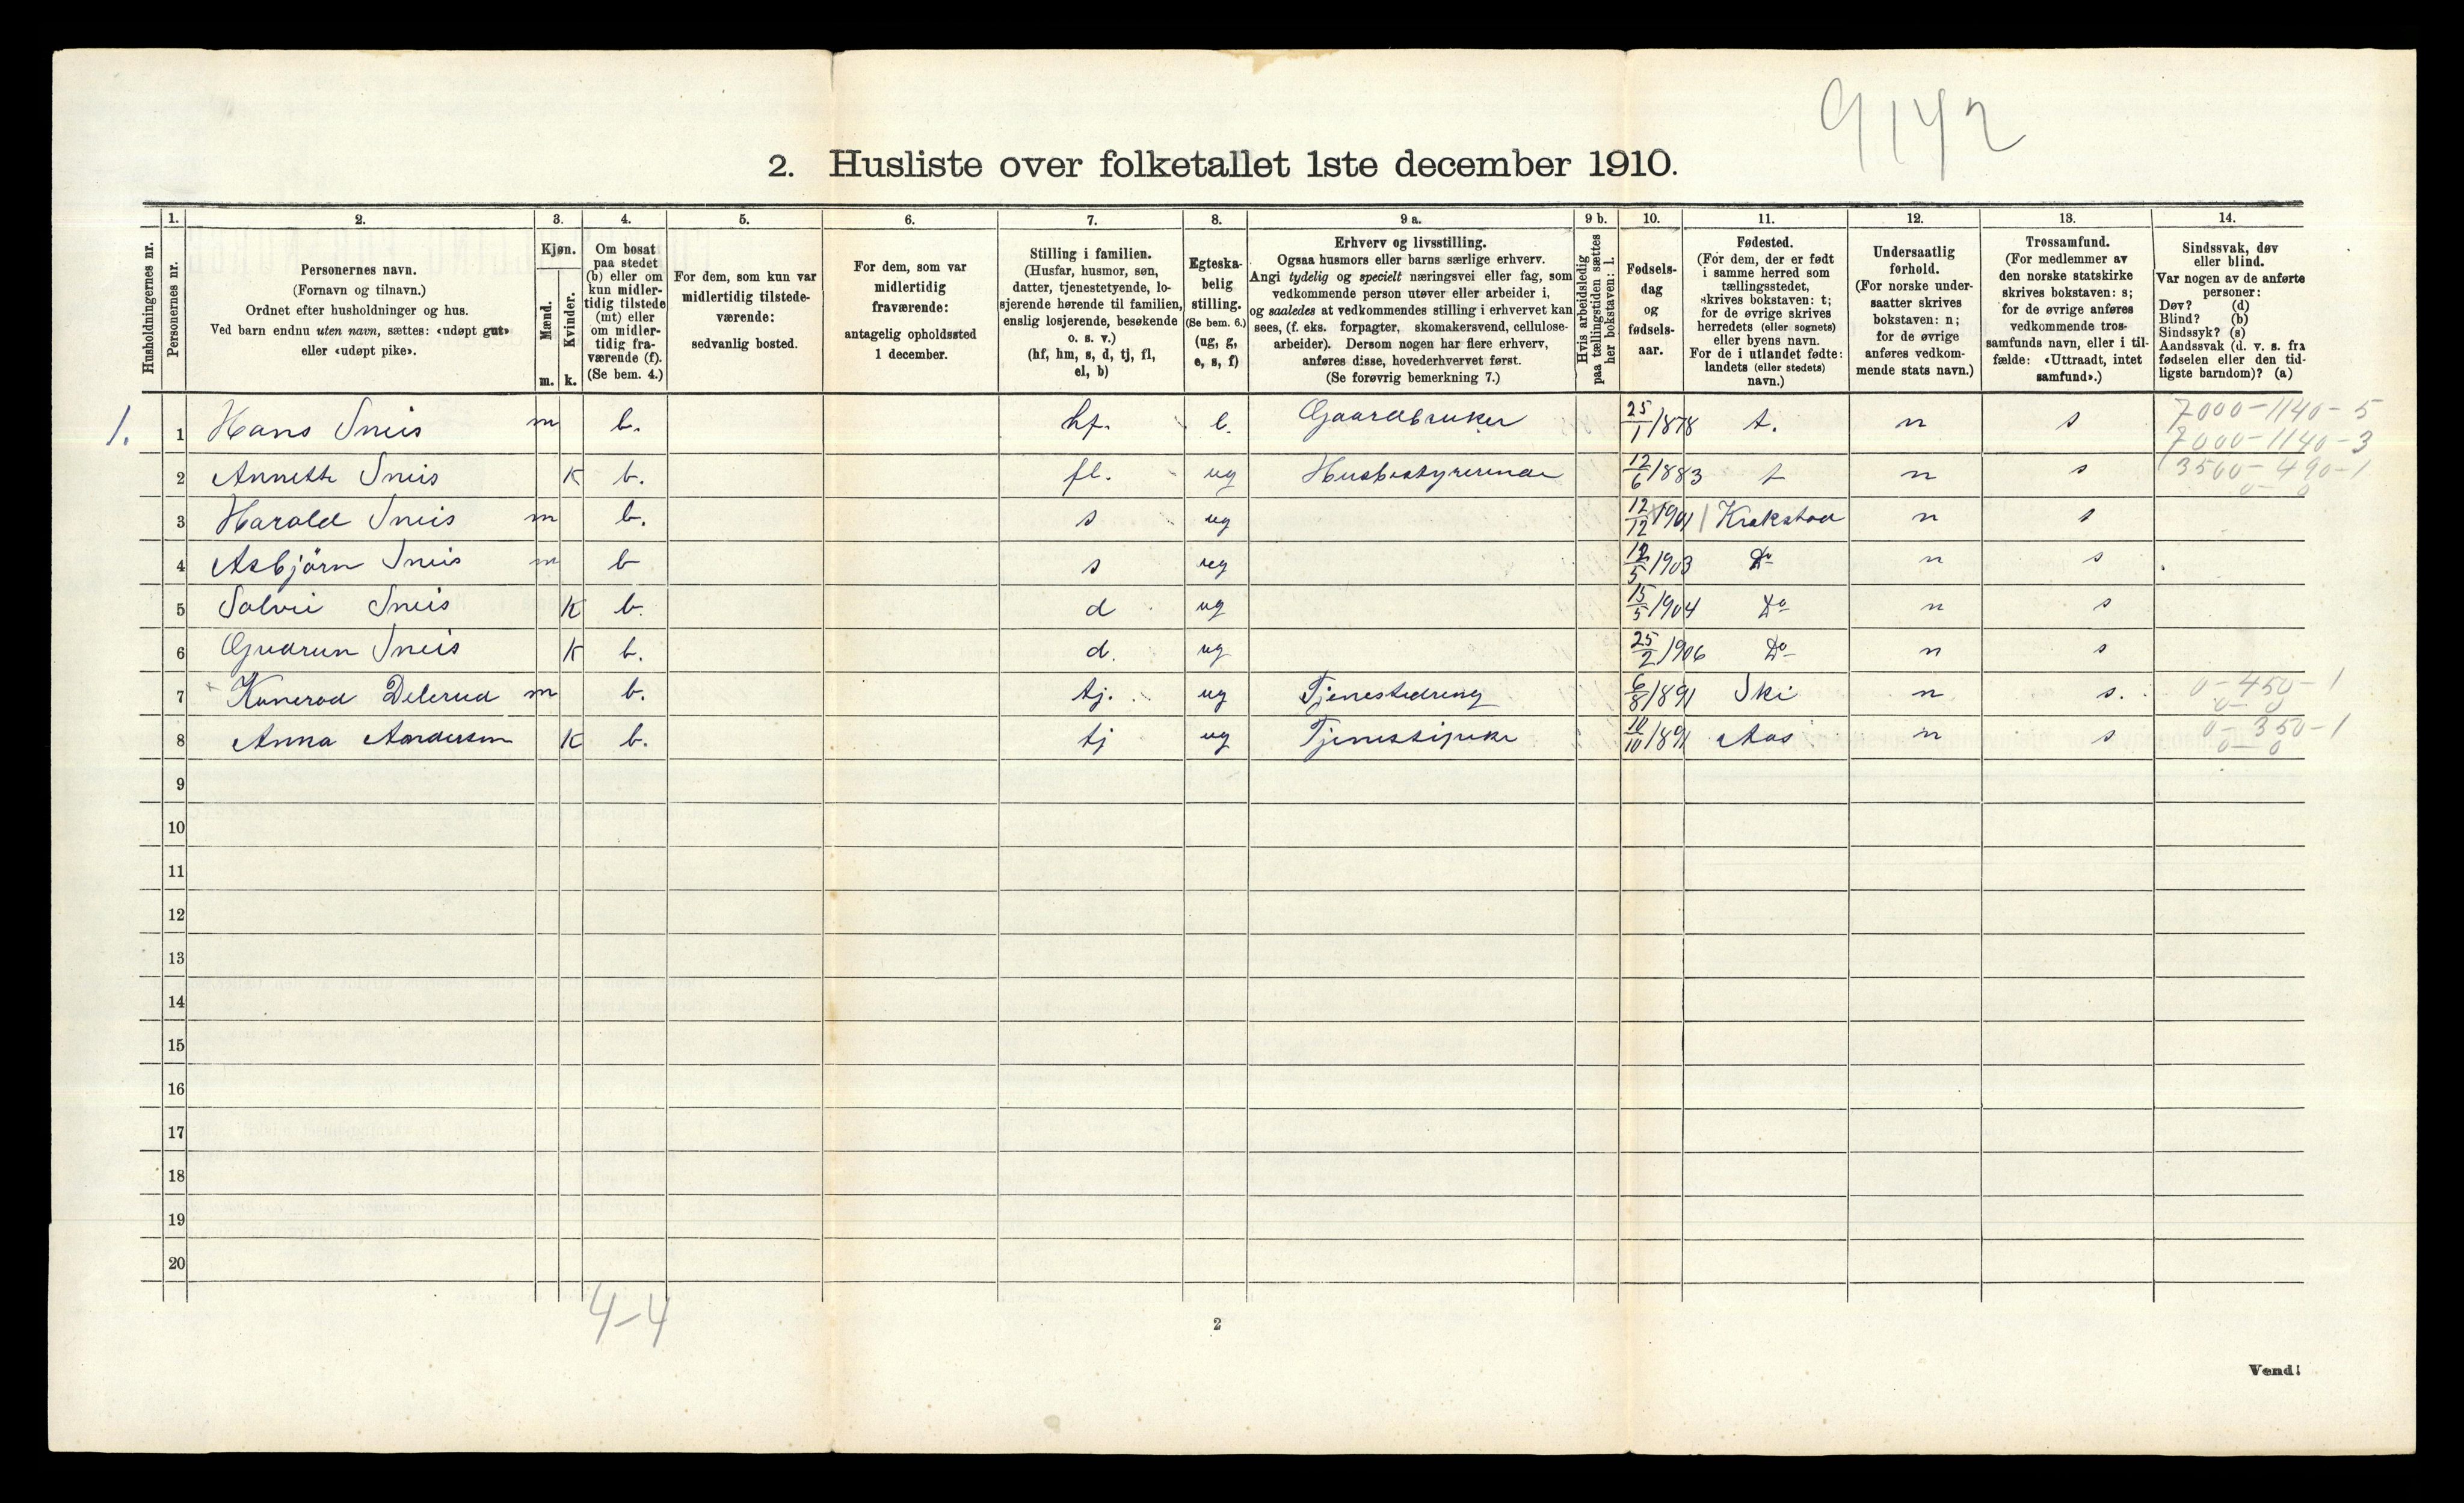 9142
2. Husliste over folketallet 1ste december 1910.
1. 2. 3. 4. 5. 6. 7. 8. 9 a. 9 b. 10. 11. 12. 13. 14.
Husholdningernes nr.
Personernes nr.
Personernes navn.
(Fornavn og tilnavn.)
Ordnet efter husholdninger og hus.
Ved barn endnu uten navn, sættes: «udøpt gut»
eller «udøpt pike».
Kjøn.
Mænd.
Kvinder.
m. k.
Om bosat
paa stedet
(b) eller om
kun midler-
tidig tilstede
(mt) eller
om midler-
tidig fra-
værende (f).
(Se bem. 4.)
For dem, som kun var
midlertidig tilstede-
værende:
sedvanlig bosted.
For dem, som var
midlertidig
fraværende:
antagelig opholdssted
1 december.
Stilling i familien.
(Husfar, husmor, søn,
datter, tjenestetyende, lo-
sjerende hørende til familien,
enslig losjerende, besøkende
o. s. v.)
(hf, hm, s, d, tj, fl,
el, b)
Egteska-
belig
stilling.
(Se bem. 6.)
(ug, g,
e, s, f)
Erhverv og livsstilling.
Ogsaa husmors eller barns særlige erhverv.
Angi tydelig og specielt næringsvei eller fag, som
vedkommende person utøver eller arbeider i,
og saaledes at vedkommendes stilling i erhvervet kan
sees, (f. eks. forpagter, skomakersvend, cellulose-
arbeider). Dersom nogen har flere erhverv,
anføres disse, hovederhvervet først.
(Se forøvrig bemerkning 7.)
Hvis arbeidsledig
paa tællingstiden sættes
her bokstaven: l.
Fødsels-
dag
og
fødsels-
aar.
Fødested.
(For dem, der er født
i samme herred som
tællingsstedet,
skrives bokstaven: t;
for de øvrige skrives
herredets (eller sognets)
eller byens navn.
For de i utlandet fødte:
landets (eller stedets)
navn.)
Undersaatlig
forhold.
(For norske under-
saatter skrives
bokstaven: n;
for de øvrige
anføres vedkom-
mende stats navn.)
Trossamfund.
(For medlemmer av
den norske statskirke
skrives bokstaven: s;
for de øvrige anføres
vedkommende tros-
samfunds navn, eller i til-
fælde: «Uttraadt, intet
samfund».)
Sindssvak, døv
eller blind.
Var nogen av de anførte
personer:
Døv? (d)
Blind? (b)
Sindssyk? (s)
Aandssvak (d. v. s. fra
fødselen eller den tid-
ligste barndom)? (a)
1. 1 Hans Sneis m b. hf. e. Gaardbruker 25/1 1878 t. n s 7000-1140-5
7000-1140-3
2 Annette Sneis K b. fl. ug Husbestyrerinde 12/6 1883 t n s 3500-490-1
0-0
3 Harald Sneis m b. s ug 12/12 1901 Krakstad n s
4 Asbjörn Sneis m b s ug 12/5 1903 Do n s
5 Solvei Sneis K b. d ug 15/5 1904 Do n s
6 Gudrun Sneis K b. d. ug 25/2 1906 Do n s
7 Konerad Delerud m b. tj. ug Tjenestedreng 6/8 1891 Ski n s. 0-450-1
0-0
8 Anna Aandersen K b. tj ug Tjenestepike 10/10 1891 Aas n s 0-350-1
0-0
9
10
11
12
13
14
15
16
17
18
19
20
4-4
2
Vend!